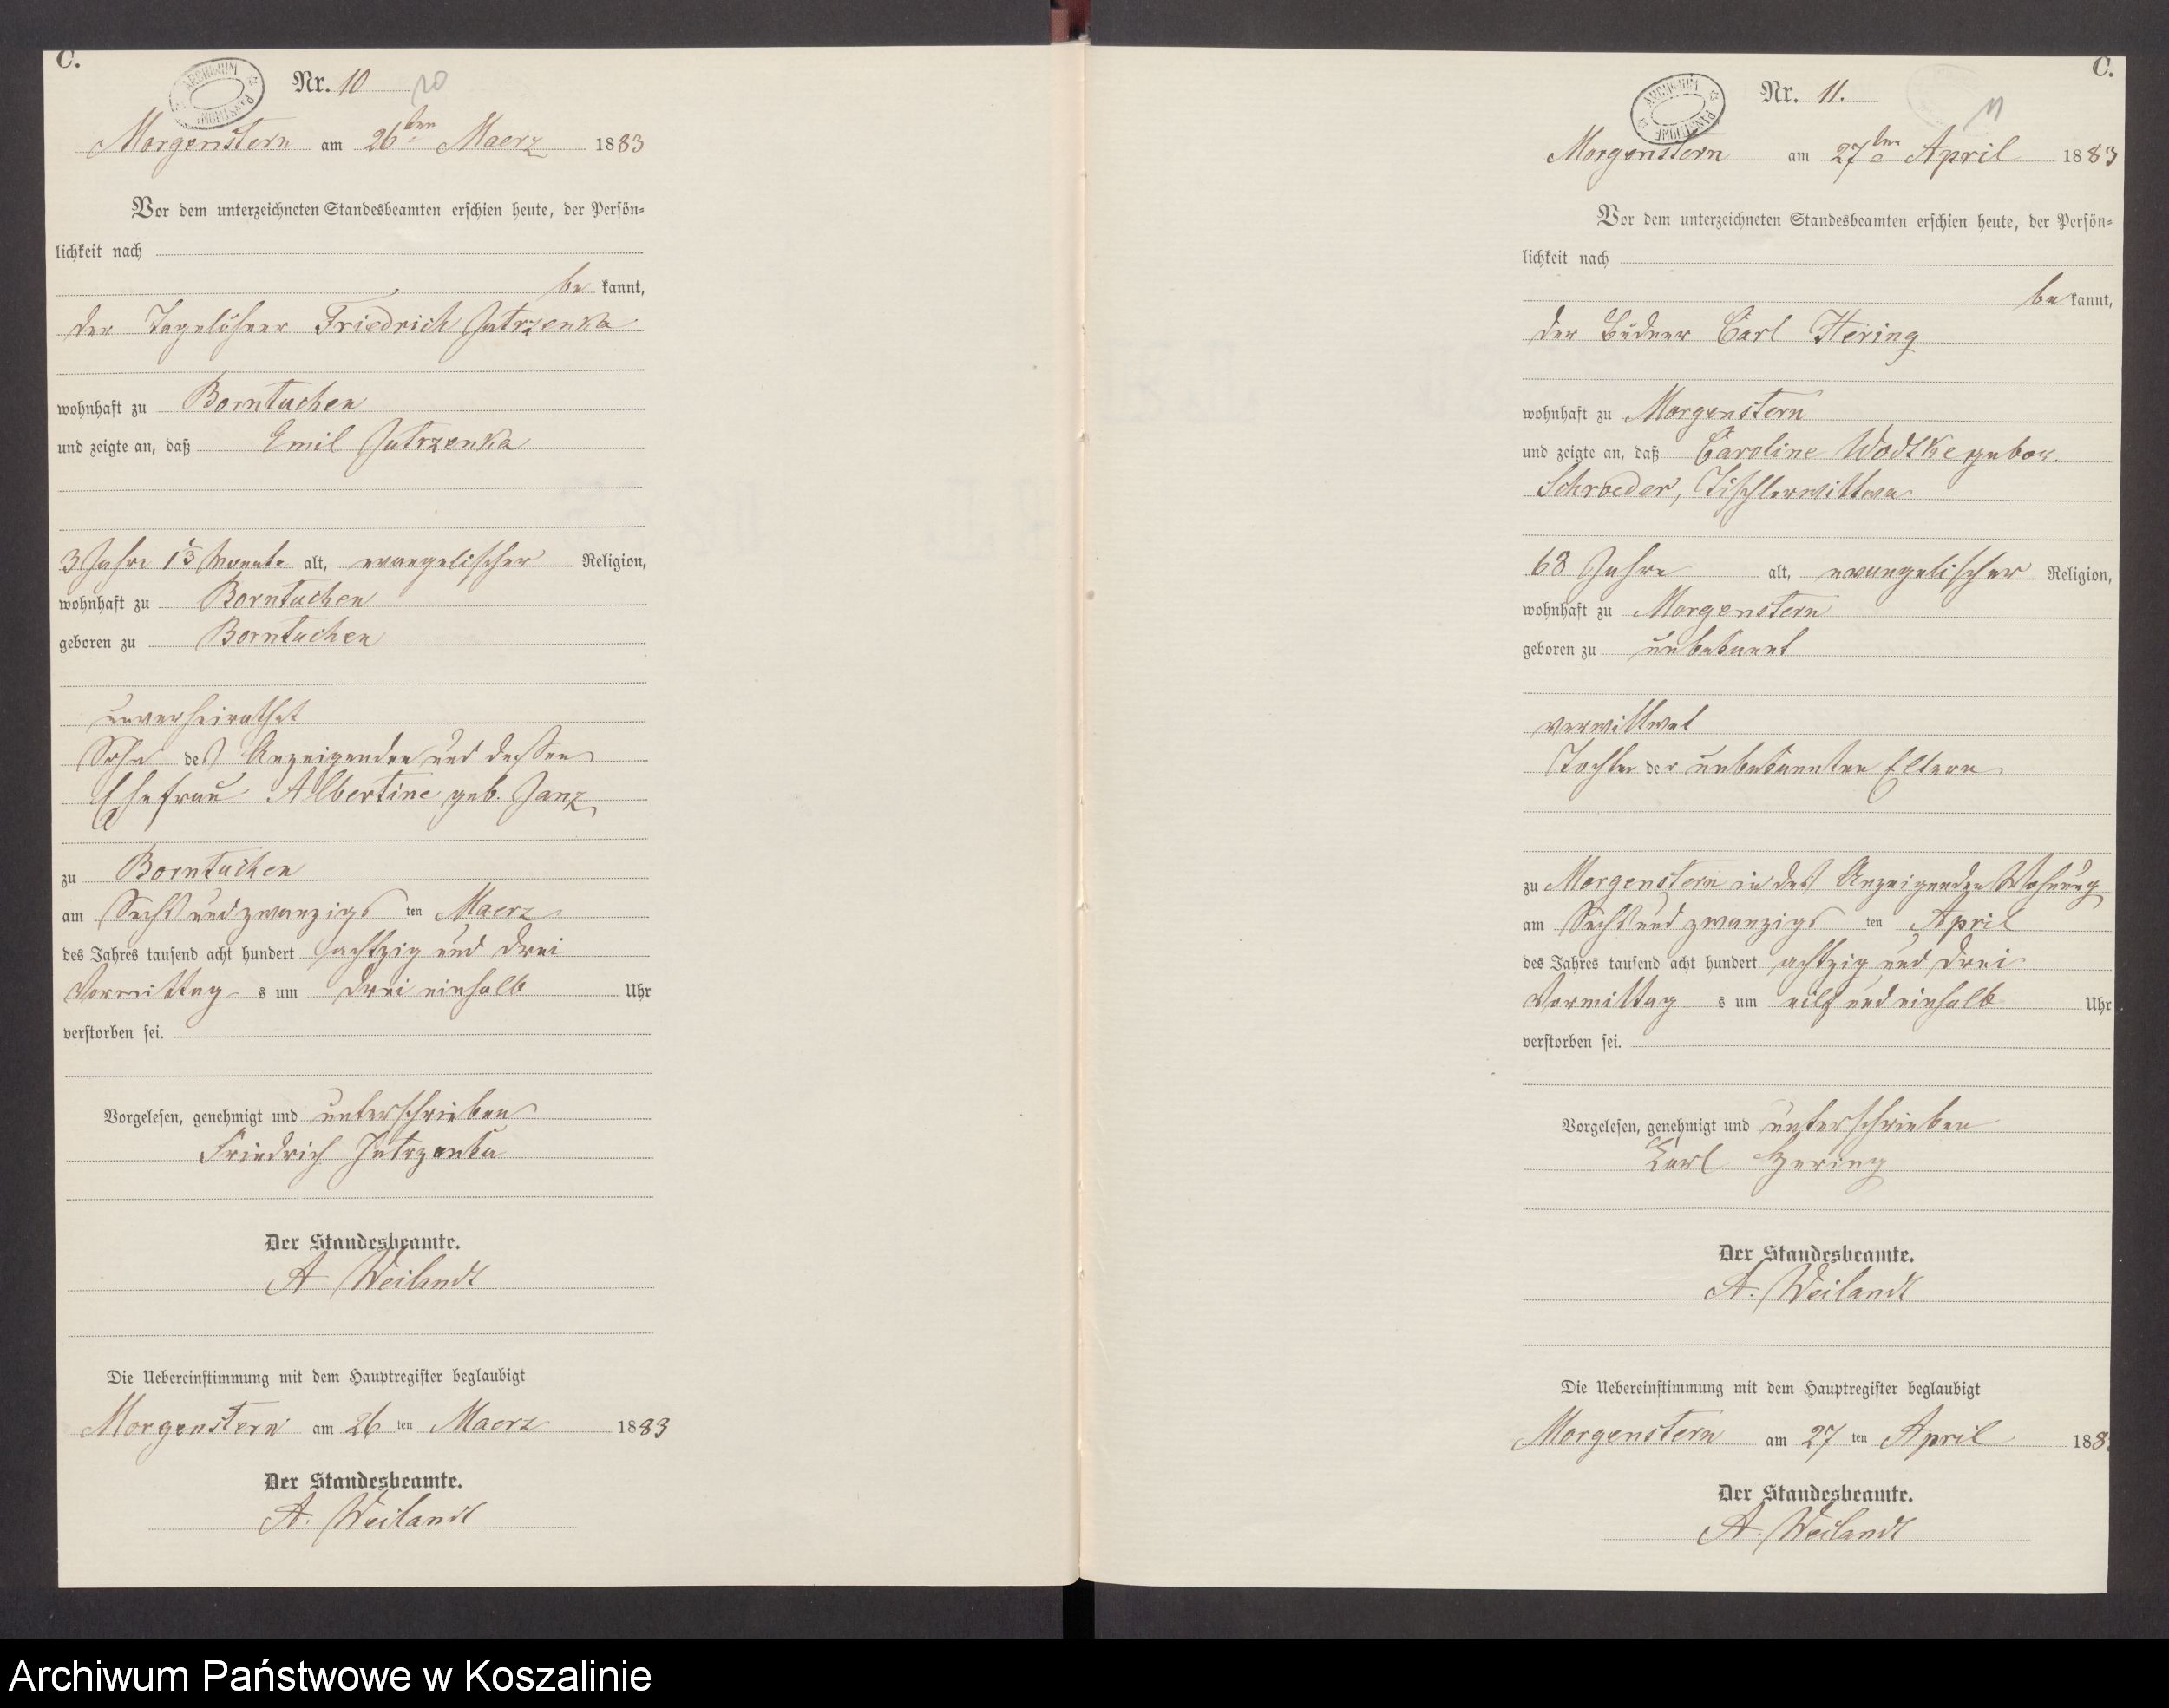 C.
ARCHIWUM PAŃSTWOWE
Nr. 10 10
Morgenstern am 26ten Maerz 1883
Vor dem unterzeichneten Standesbeamten erschien heute, der Persön-
lichkeit nach
be kannt,
der Tagelöhner Friedrich Jutrzenka
wohnhaft zu Borntuchen
und zeigte an, daß Emil Jutrzenka
3 Jahre Monate alt, evangelischer Religion,
wohnhaft zu Borntuchen
geboren zu Borntuchen
unverheirathet
Sohn des Anzeigenden und dessen
Ehefrau Albertine geb. Janz
zu Borntuchen
am Sechs und zwanzigs ten Maerz
des Jahres tausend acht hundert achtzig und drei
Vormittag s um drei einhalb Uhr
verstorben sei.
Vorgelesen, genehmigt und unterschrieben
Friedrich Jutrzenka
Der Standesbeamte.
A Weilandt
Die Uebereinstimmung mit dem Hauptregister beglaubigt
Morgenstern am 26 ten Maerz 1883
Der Standesbeamte.
A. Weilandt
C.
ARCHIWUM PAŃSTWOWE
Nr. 11. 11
Morgenstern am 27ten April 1883
Vor dem unterzeichneten Standesbeamten erschien heute, der Persön-
lichkeit nach
be kannt,
der Büdner Carl Hering
wohnhaft zu Morgenstern
und zeigte an, daß Caroline Wodtke gebor.
Schroeder, Tischlerwittwe
68 Jahre alt, evangelischer Religion,
wohnhaft zu Morgenstern
geboren zu unbekannt
verwittwet
Tochter der unbekannten Eltern
zu Morgenstern in des Anzeigenden Wohnung
am Sechs und zwanzigs ten April
des Jahres tausend acht hundert achtzig und drei
Vormittag s um eilf und einhalb Uhr
verstorben sei.
Vorgelesen, genehmigt und unterschrieben
Karl Hering
Der Standesbeamte.
A. Weilandt
Die Uebereinstimmung mit dem Hauptregister beglaubigt
Morgenstern am 27 ten April 188
Der Standesbeamte.
A. Weilandt
Archiwum Państwowe w Koszalinie